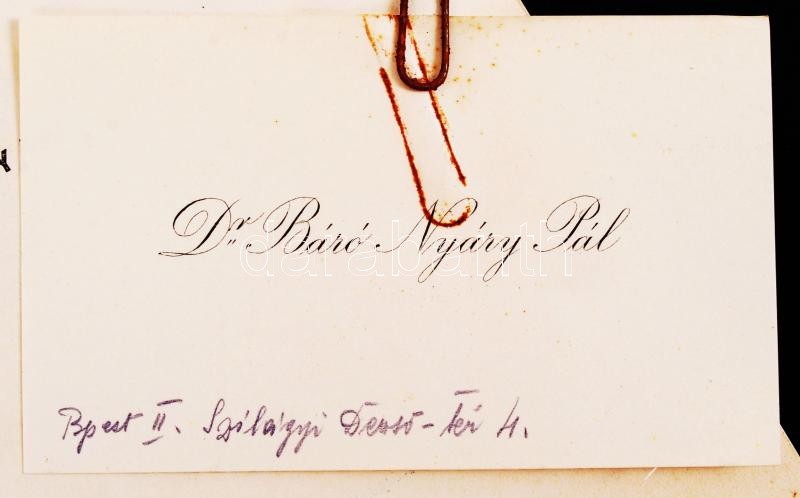 Dr. Báró Nyáry Pál
darabanth
Bpest II. Szilágyi Dezső-tér 4.